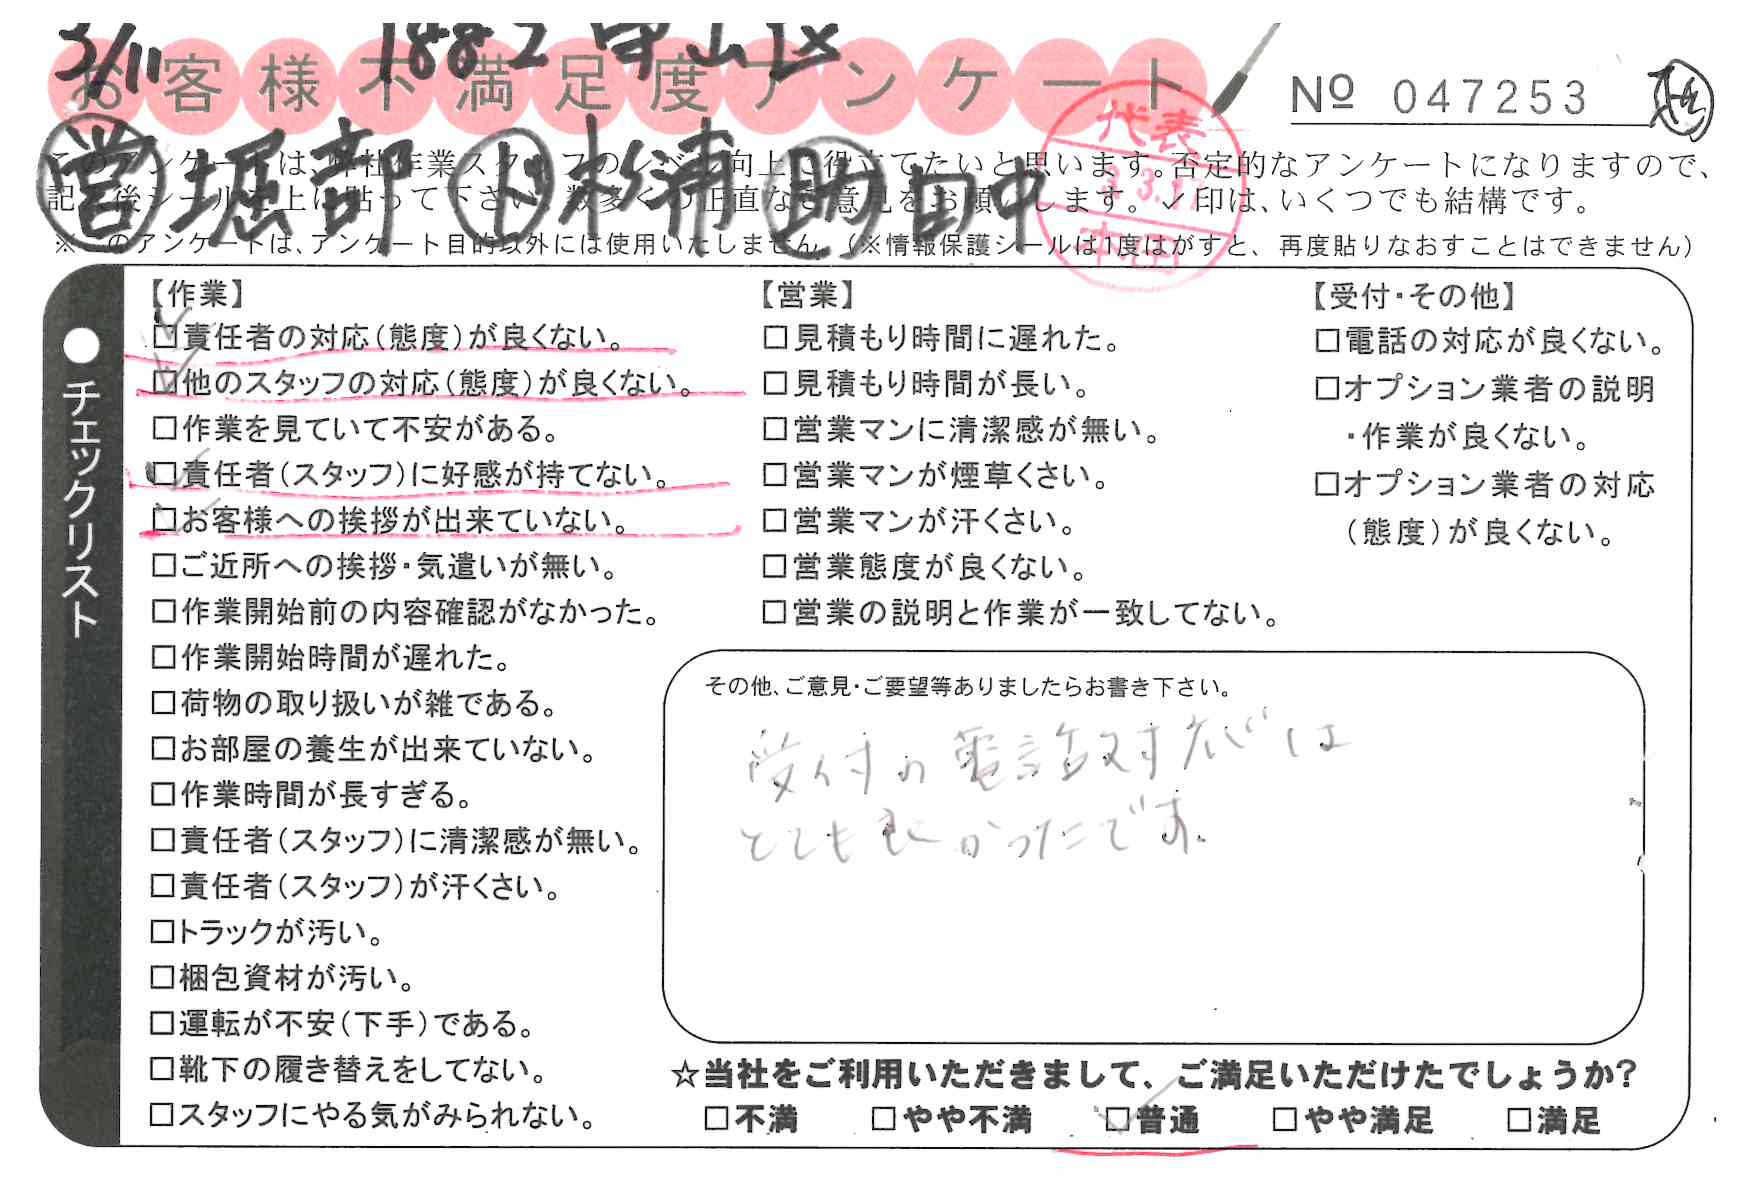 3/11 1882 守山区
お客様不満足度アンケート
№ 047253
営 堀部 ド 杉浦 助 田中
代表
3.3.
このアンケートは、弊社作業スタッフのレベル向上に役立てたいと思います。否定的なアンケートになりますので、
記入後シールを上に貼って下さい。数多くの正直なご意見をお願いします。✓印は、いくつでも結構です。
※このアンケートは、アンケート目的以外には使用いたしません。(※情報保護シールは1度はがすと、再度貼りなおすことはできません)
●チェックリスト
【作業】
☑責任者の対応(態度)が良くない。
☑他のスタッフの対応(態度)が良くない。
□作業を見ていて不安がある。
☑責任者(スタッフ)に好感が持てない。
☑お客様への挨拶が出来ていない。
□ご近所への挨拶・気遣いが無い。
□作業開始前の内容確認がなかった。
□作業開始時間が遅れた。
□荷物の取り扱いが雑である。
□お部屋の養生が出来ていない。
□作業時間が長すぎる。
□責任者(スタッフ)に清潔感が無い。
□責任者(スタッフ)が汗くさい。
□トラックが汚い。
□梱包資材が汚い。
□運転が不安(下手)である。
□靴下の履き替えをしてない。
□スタッフにやる気がみられない。
【営業】
□見積もり時間に遅れた。
□見積もり時間が長い。
□営業マンに清潔感が無い。
□営業マンが煙草くさい。
□営業マンが汗くさい。
□営業態度が良くない。
□営業の説明と作業が一致してない。
【受付・その他】
□電話の対応が良くない。
□オプション業者の説明
・作業が良くない。
□オプション業者の対応
(態度)が良くない。
その他、ご意見・ご要望等ありましたらお書き下さい。
受付の電話対応は
とても良かったです。
☆当社をご利用いただきまして、ご満足いただけたでしょうか?
□不満 □やや不満 ☑普通 □やや満足 □満足